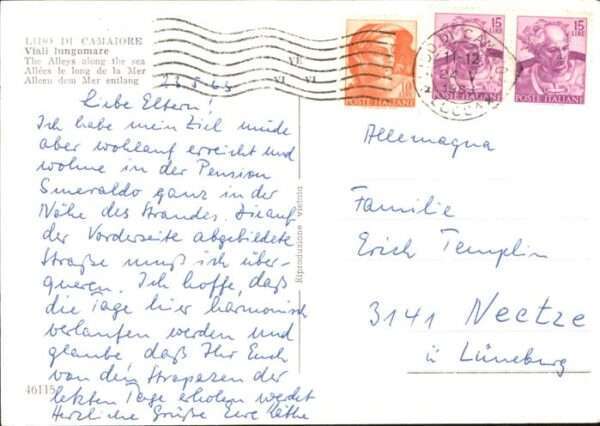 LIDO DI CAMAIORE
Viali lungomare
The Alleys along the sea
Allées le long de la Mer
Alleen dem Mer entlang
10
LIRE
POSTE ITALIANE
15
LIRE
POSTE ITALIANE
15
LIRE
POSTE ITALIANE
LIDO DI CAMAIORE
11-12
Liebe Eltern!
Ich habe mein Ziel müde
aber wohlauf erreicht und
wohne in der Pension
Smeraldo ganz in der
Nähe des Strandes. Die auf
der Vorderseite abgebildete
Straße muß ich über-
queren. Ich hoffe, daß
die Tage hier harmonisch
verlaufen werden und
glaube, daß Ihr Euch
von den Strapazen der
letzten Tage erholen werdet
Herzliche Grüße Eure Käthe
46115
Riproduzione vietata
Allemagna
Familie
Erich Templin
3141 Neetze
ü Lüneburg